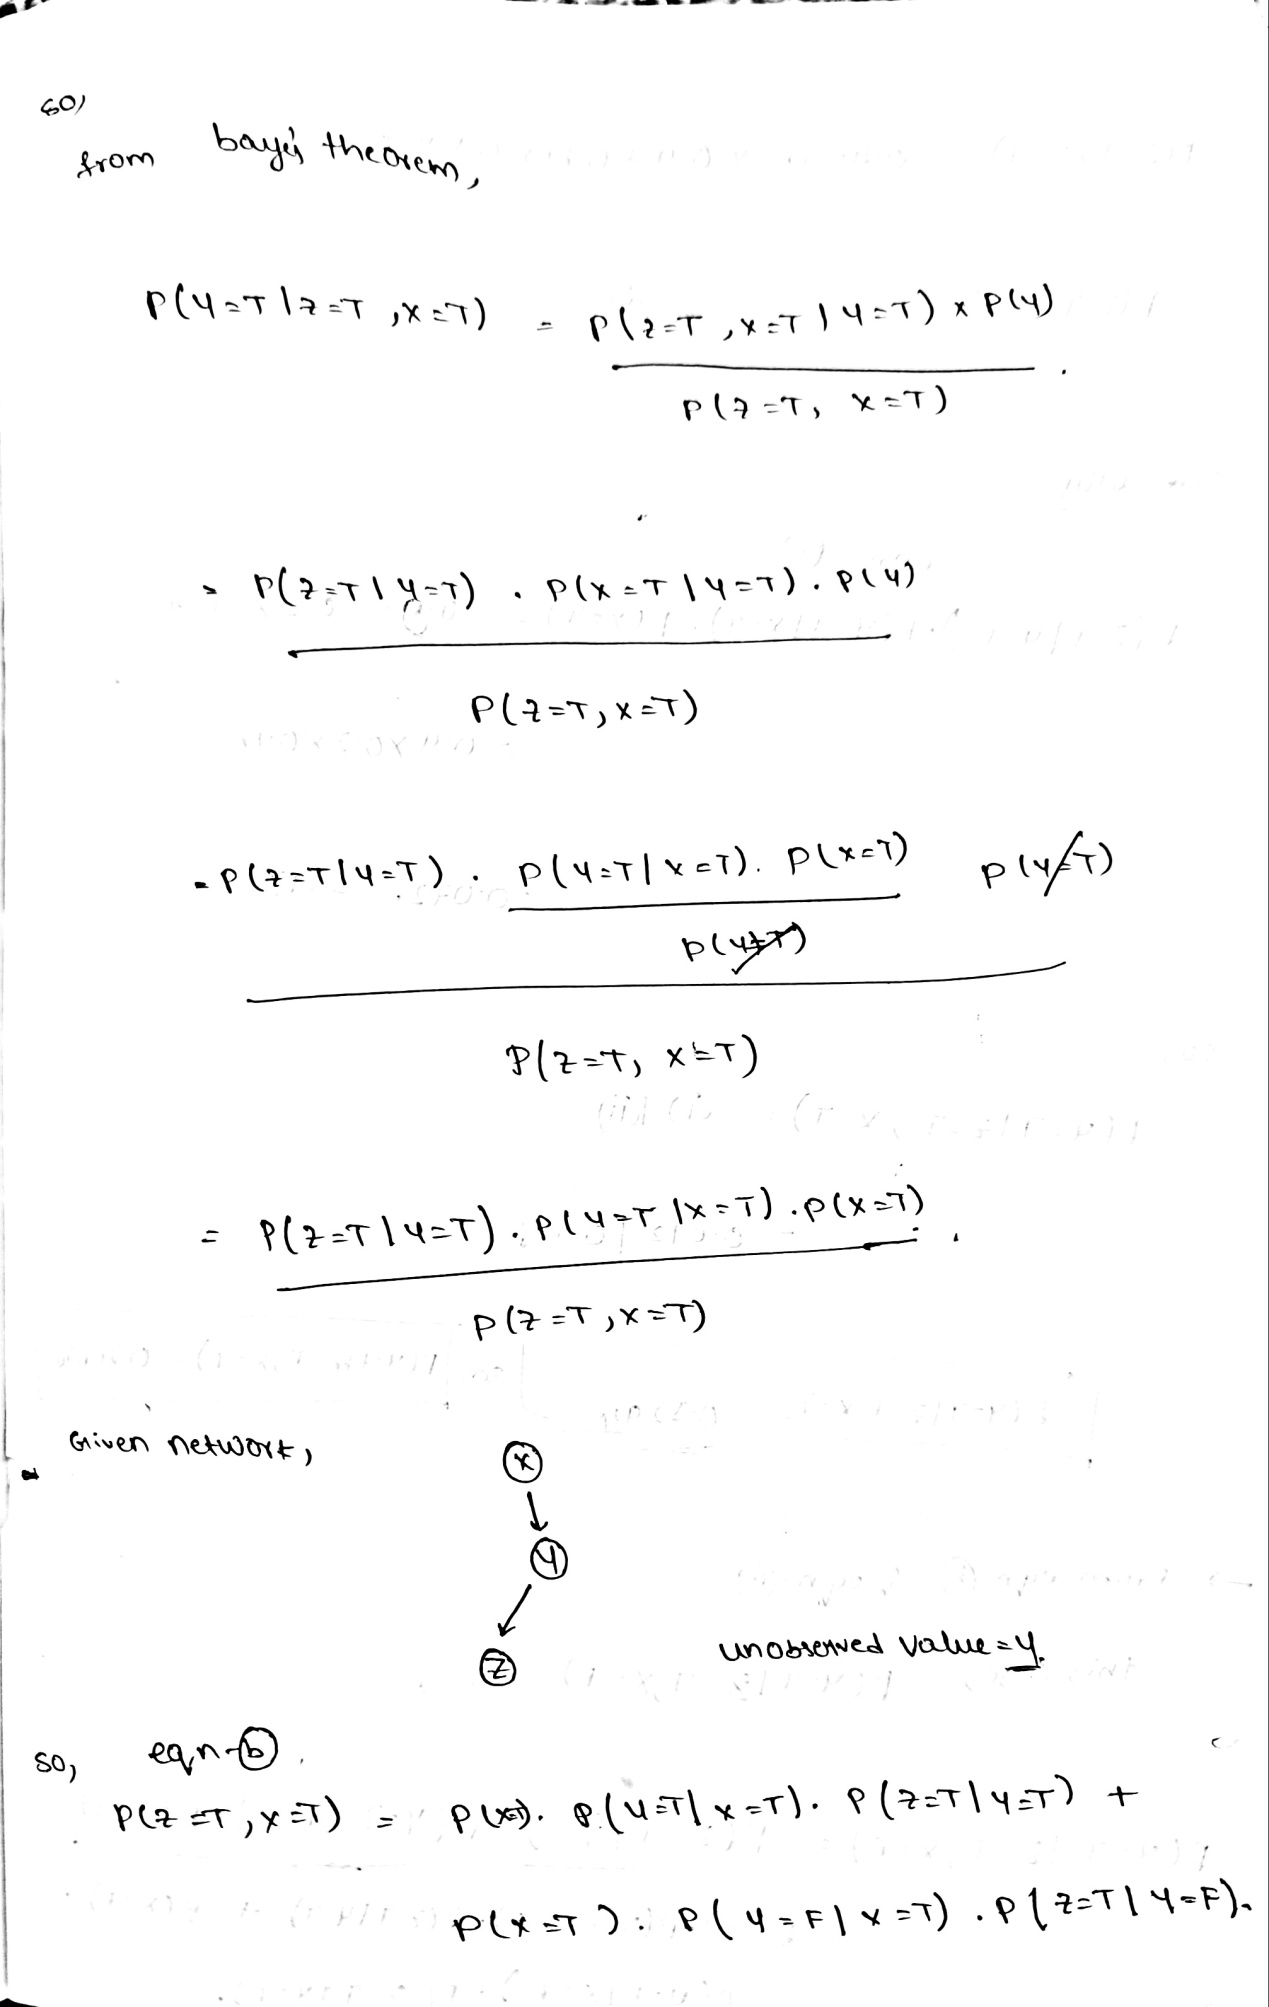 so,
from baye's theorem,
P(Y=T|Z=T, X=T) = P(Z=T, X=T|Y=T) x P(Y)
P(Z=T, X=T)
= P(Z=T|Y=T) . P(X=T|Y=T) . P(Y)
P(Z=T, X=T)
= P(Z=T|Y=T) . P(Y=T|X=T). P(X=T) P(Y=T)
P(Y=T)
P(Z=T, X=T)
= P(Z=T|Y=T) . P(Y=T|X=T) . P(X=T)
P(Z=T, X=T)
Given network,
X
Y
Z
unobserved value = Y.
so, eqn-b
P(Z=T, X=T) = P(X=T). P(Y=T|X=T). P(Z=T|Y=T) +
P(X=T). P(Y=F|X=T) . P(Z=T|Y=F).